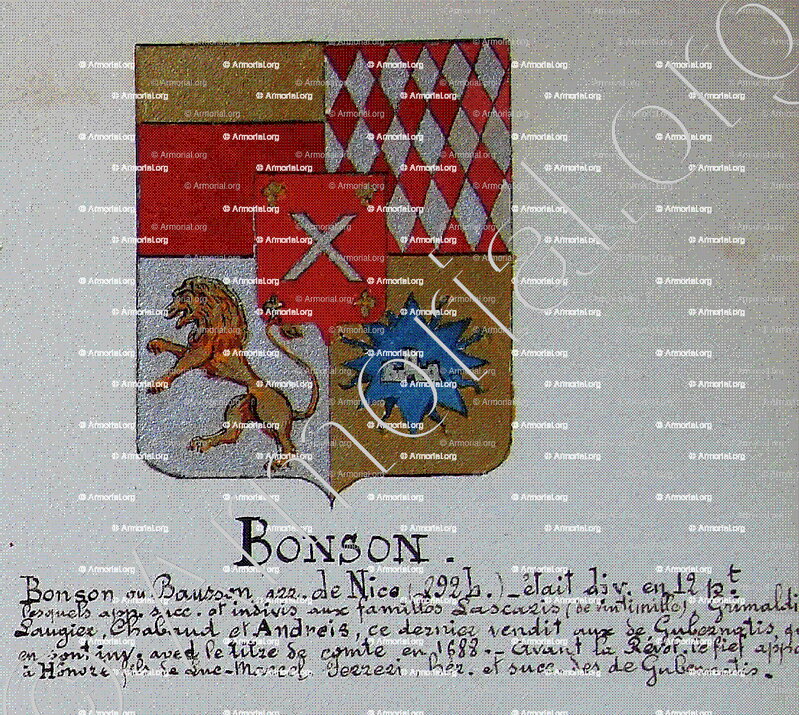 BONSON.
Bonson ou Bausson arr. de Nice (292 h.) - était div. en 12 pt
lesquels app. succ. et indivis aux familles Lascaris (de Vintimille) - Grimaldi
Laugier, Chabaud et Andreis, ce dernier vendit aux de Gubernatis
en avec le titre de comte en 1688. - Avant la Révol. ce fief
à Honoré fils de Luc-Marcel Ferreri, hér. et succ. des de Gubernatis.
© Armorial.org
Armorial.org